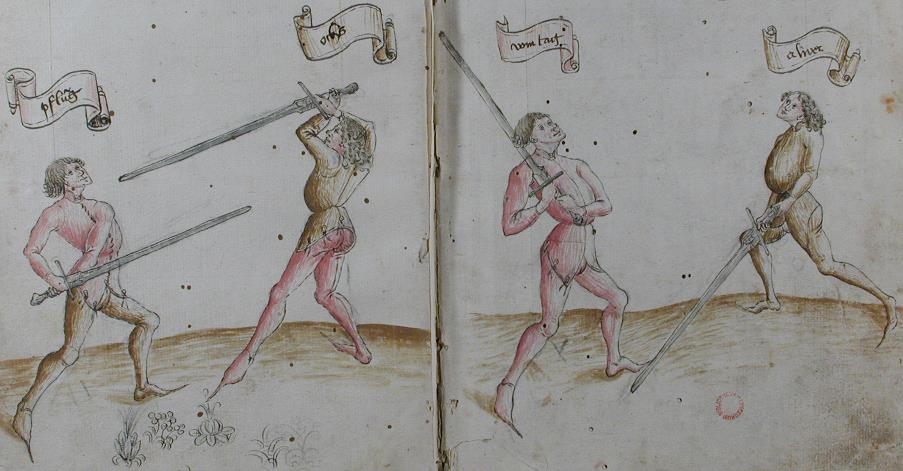 pflüg
ochs
vom tag
alber